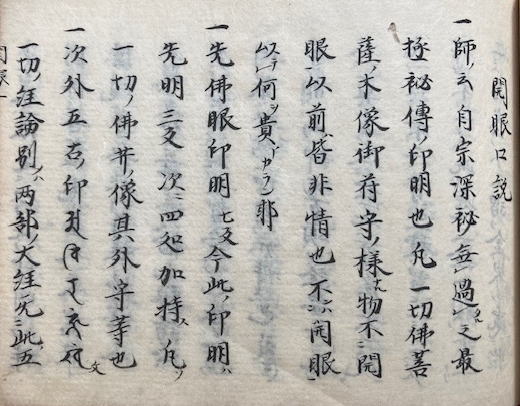 開眼口説
一師ノ云自宗深祕無過之最
極祕傳ノ印明也凡一切佛菩
薩ノ木像御符守ノ様ナル物不開
眼以前ハ皆非情也不開眼
以テ何ヲ貴カラン耶
一先佛眼印明七反今此ノ印明ハ
先明三反次ニ四処加持ス凡ソ
一切ノ佛并ノ像其外守等也
一次外五古ノ印 文
一切ノ経論別ハ両部ノ大経此五